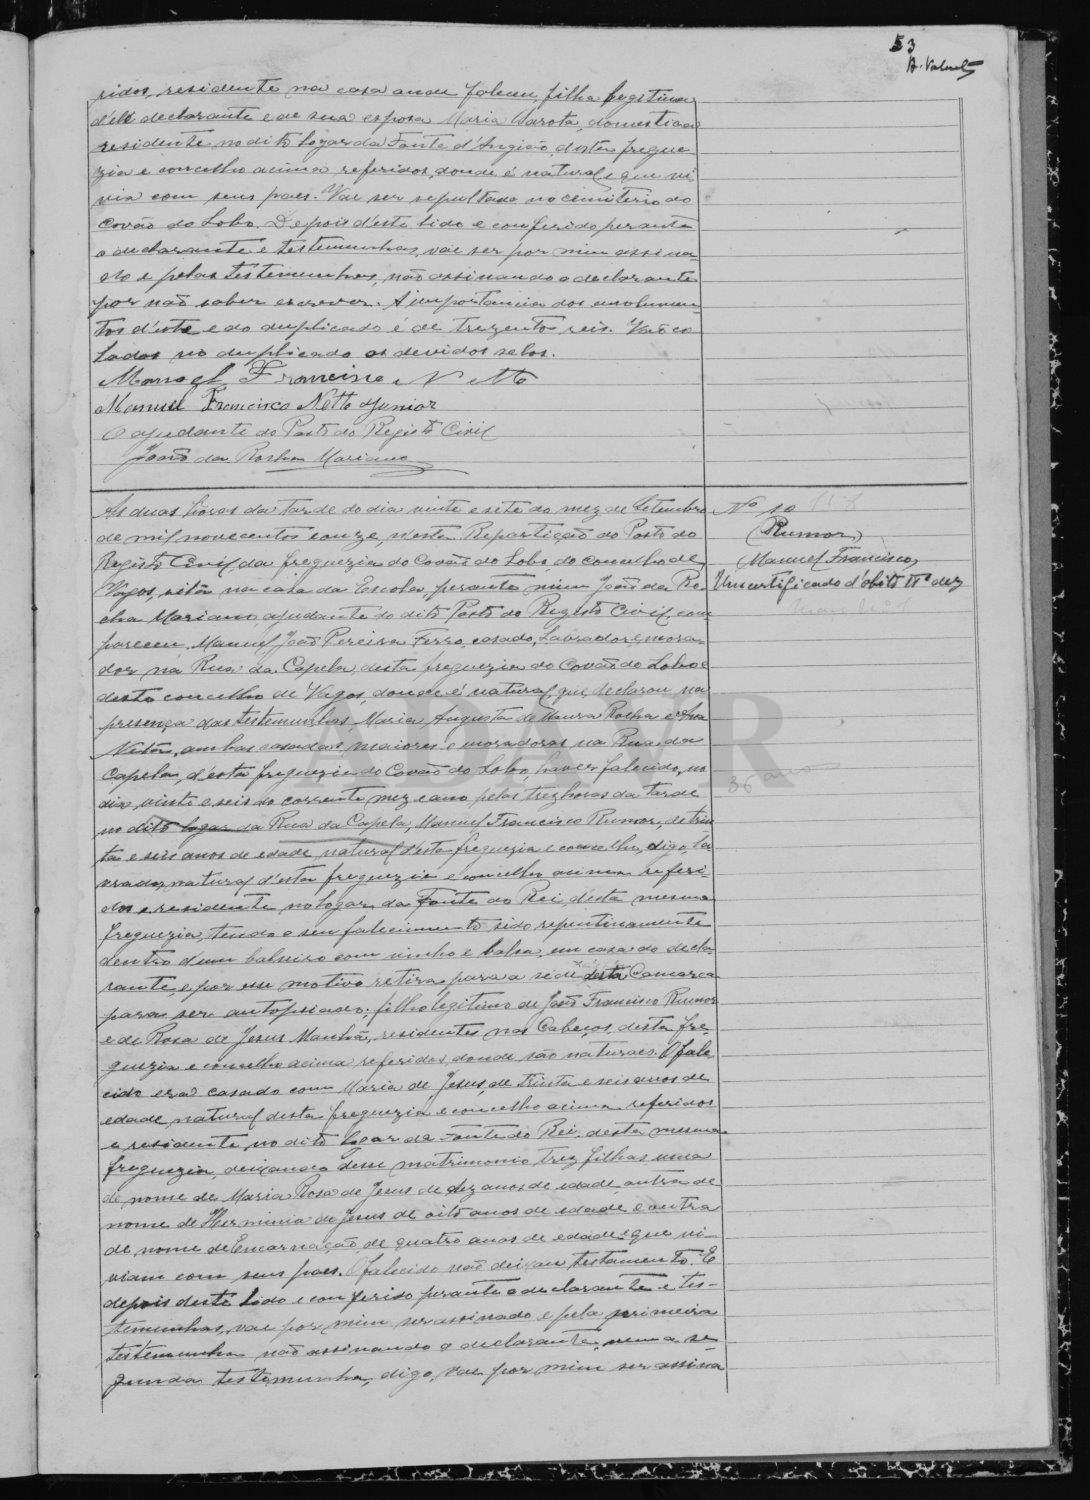 53
A. Valente
ridos, residente na casa onde faleceu, filha legitima
d'elle declarante e de sua esposa Maria Sarota, domestica
residente no dito logar da Fonte d'Angião, desta fregue
zia e concelho acima referidos, donde é natural, e que vi
via com seus paes. Vae ser sepultada no cemiterio do
Covão do Lobo. Depois d'este lido e conferido perante
o declarante e testemunhas, vae ser por mim assina-
do e pelas testemunhas, não assinando o declarante
por não saber escrever. A importancia dos emolumen-
tos d'este e do duplicado é de trezentos reis. Vão co
lados no duplicado os devidos selos.
Manoel Francisco Netto
Manuel Francisco Netto Junior
O ajudante do Posto do Registo Civil
João da Rocha Mariano
As duas horas da tarde do dia vinte e sete do mez de Setembro
de mil novecentos e onze, n'esta Repartição do Posto do
Registo Civil, da freguezia do Covão do Lobo, do concelho de
Vagos, sita na casa da Escola, perante mim João da Ro-
cha Mariano, ajudante do dito Posto do Registo Civil, com
pareceu, Manuel João Pereira Ferro, casado, Lavrador e mora-
dor na Rua da Capela, desta freguezia do Covão do Lobo e
deste concelho de Vagos, donde é natural, que declarou na
presença das testemunhas Maria Augusta de Moura Rocha e Ana
Netta, ambas casadas, maiores e moradoras na Rua da
Capela, d'esta freguezia do Covão do Lobo, haver falecido, no
dia, vinte e seis do corrente mez e ano pelas trez horas da tarde
no dito logar da Rua da Capela, Manuel Francisco Rumor, de trin
ta e seis anos de edade, natural d'esta freguezia e concelho, digo, la
vrador, natural d'esta freguezia e concelho acima referi-
dos e residente no logar da Fonte do Rei, d'esta mesma
freguezia, tendo o seu falecimento sido repentinamente
dentro d'um balseiro com vinho e balsa, em casa do decla-
rante, e por esse motivo retira para a séde desta Comarca
para ser autopsiado: filho legitimo de João Francisco Rumor
e de Rosa de Jesus Manhã, residentes nas Cabeços, desta fre-
guezia e concelho acima referidos, donde são naturaes. O fale
cido era casado com Maria de Jesus, de trinta e seis anos de
edade, natural desta freguezia e concelho acima referidos
e residente no dito logar da Fonte do Rei, desta mesma
freguezia, deixando deste matrimonio trez filhas, uma
de nome de Maria Rosa de Jesus de dez anos de edade, outra de
nome de Herminia de Jesus de oito anos de edade, e outra
de nome de Encarnação, de quatro anos de edade e que vi-
viam com seus paes. O falecido não deixou testamento. E
depois deste lido e conferido perante o declarante e tes-
temunhas, vae por mim ser assinado e pela primeira
testemunha não assinando o declarante, nem a se-
gunda testemunha, digo, vae por mim ser assina
Nº 10
(Rumor)
Manuel Francisco
Um certificado d'obito nº dez
36 anos
ADAVR